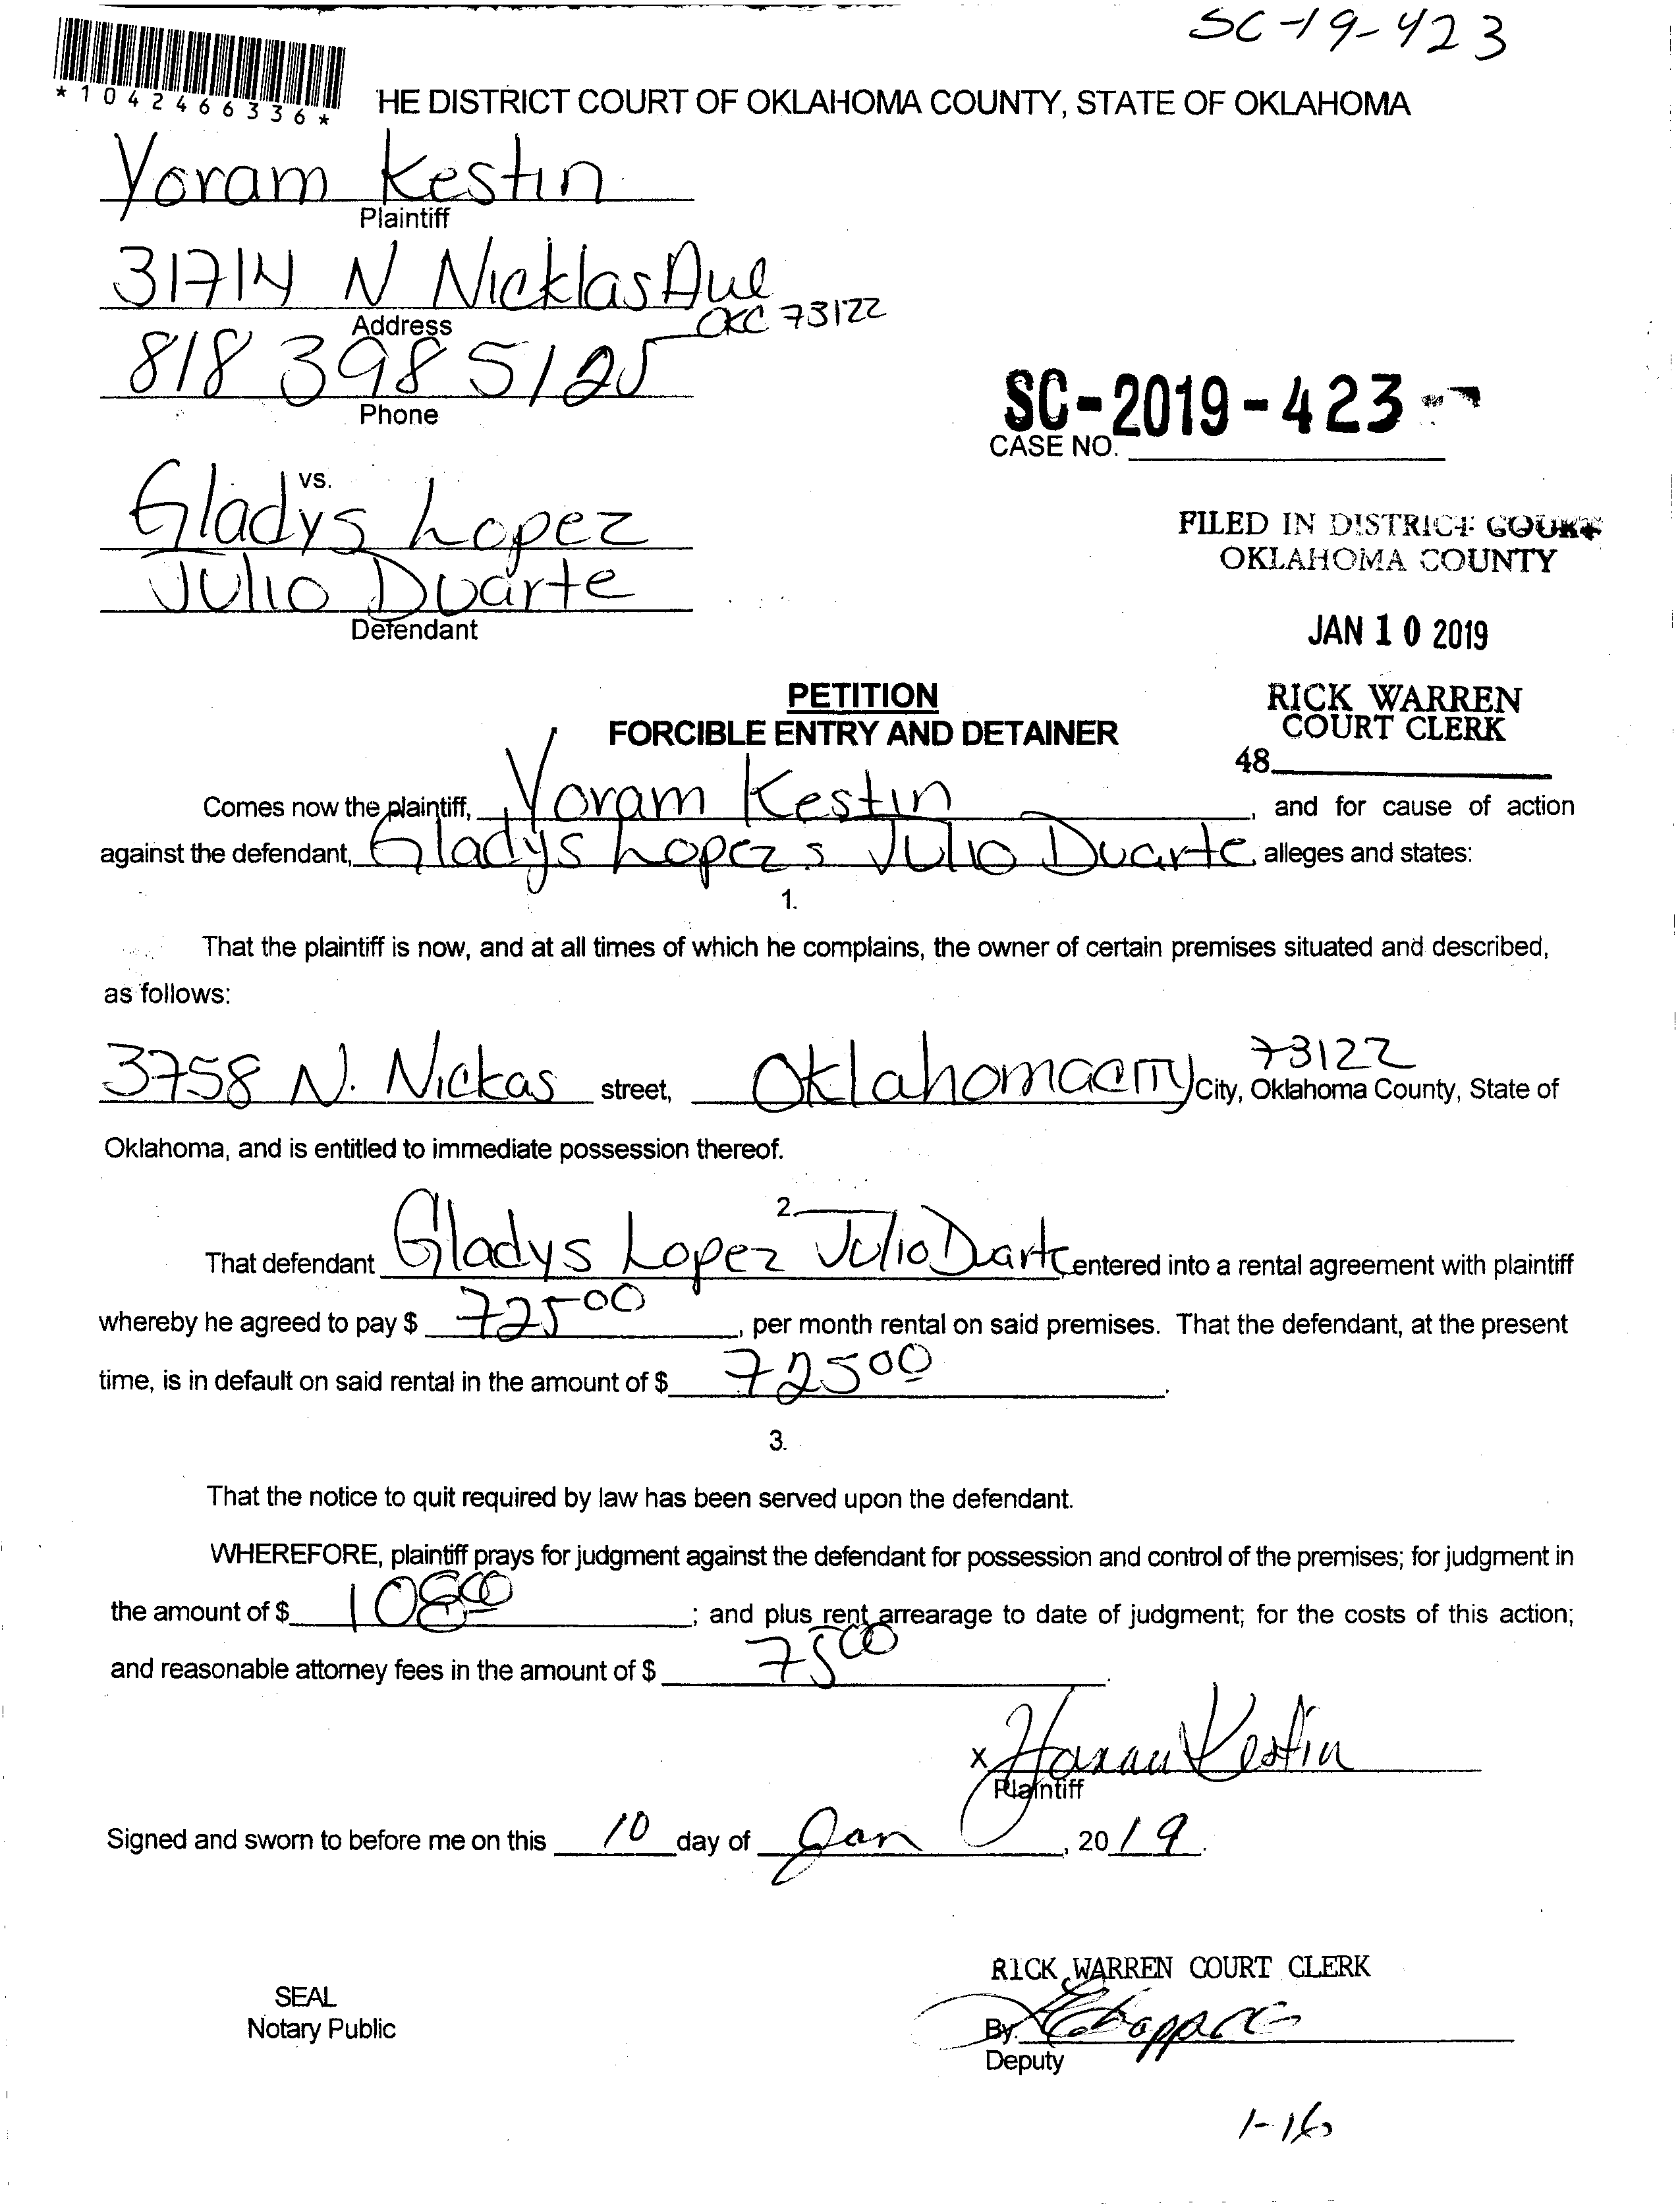 SC-19-423
*1042466336*
HE DISTRICT COURT OF OKLAHOMA COUNTY, STATE OF OKLAHOMA
Yoram Kestin
Plaintiff
31714 N Nicklas Ave
OKC 73122
Address
818 398 5125
Phone
SC-2019-423
CASE NO.
vs.
Gladys Lopez
Julio Duarte
Defendant
FILED IN DISTRICT COURT
OKLAHOMA COUNTY
JAN 10 2019
RICK WARREN
COURT CLERK
48
PETITION
FORCIBLE ENTRY AND DETAINER
Comes now the plaintiff, Yoram Kestin, and for cause of action
against the defendant, Gladys Lopez Julio Duarte alleges and states:
1.
That the plaintiff is now, and at all times of which he complains, the owner of certain premises situated and described,
as follows:
3758 N. Nickas street, Oklahomacity 73122 City, Oklahoma County, State of
Oklahoma, and is entitled to immediate possession thereof.
2.
That defendant Gladys Lopez Julio Duarte entered into a rental agreement with plaintiff
whereby he agreed to pay $ 725 00, per month rental on said premises. That the defendant, at the present
time, is in default on said rental in the amount of $ 725 00.
3.
That the notice to quit required by law has been served upon the defendant.
WHEREFORE, plaintiff prays for judgment against the defendant for possession and control of the premises; for judgment in
the amount of $ 108 00; and plus rent arrearage to date of judgment; for the costs of this action;
and reasonable attorney fees in the amount of $ 75 00.
x Hanan Kestin
Plaintiff
Signed and sworn to before me on this 10 day of Jan, 2019.
RICK WARREN COURT CLERK
SEAL
Notary Public
By.
Deputy
1-16